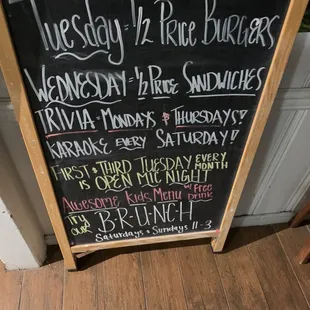 Tuesday = 1/2 Price Burgers
Wednesday = 1/2 Price Sandwiches
TRIVIA - MONDAYS & THURSDAYS!
KARAOKE EVERY SATURDAY!
FIRST + THIRD TUESDAY EVERY MONTH
IS OPEN MIC NIGHT
AWESOME KIDS MENU w/ FREE DRINK
TRY OUR B-R-U-N-C-H
SATURDAYS + SUNDAYS 11-3